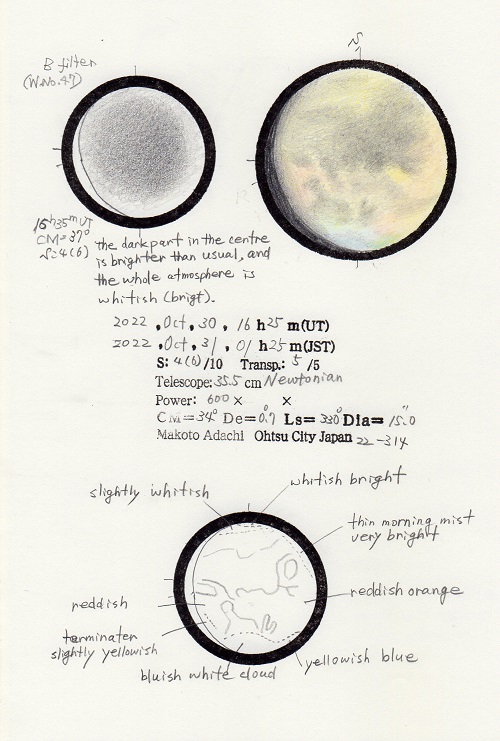 S
B filter
(W.No.47)
16h35m UT
CM=37°
S=4(6)
the dark part in the centre
is brighter than usual, and
the whole atmosphere is
whitish (brigt).
2022 , Oct , 30 , 16 h 25 m(UT)
2022 , Oct , 31 , 01 h 25 m(JST)
S: 4(6) /10 Transp.: 5 /5
Telescope: 35.5 cm Newtonian
Power: 600 × ×
CM=34° De=0.7° Ls= 330° Dia= 15.0"
Makoto Adachi Ohtsu City Japan 22-314
whitish bright
slightly whitish
thin morning mist
very bright
reddish orange
reddish
terminater
slightly yellowish
yellowish blue
bluish white cloud